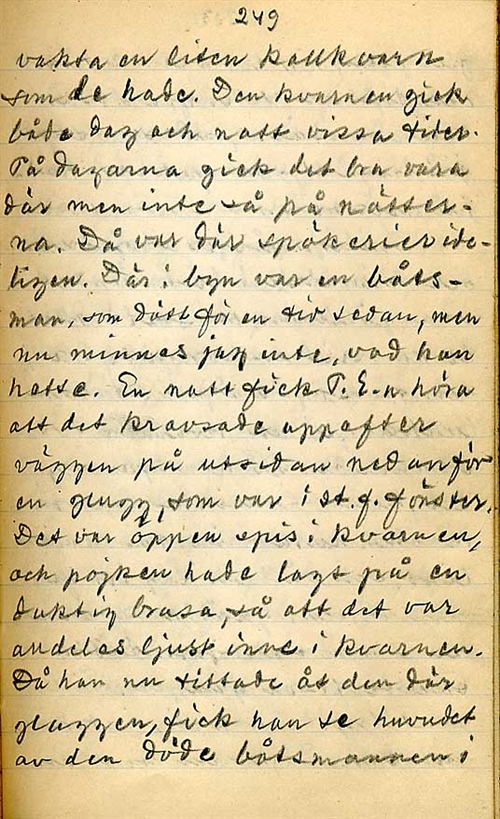 249
vakta en liten kallkvarn
som de hade. Den kvarnen gick
både dag och natt vissa tider.
På dagarna gick det bra vara
där men inte så på nätter-
na. Då var där spökerier ide-
ligen. Där i byn var en båts-
man, som dött för en tid sedan, men
nu minnes jag inte, vad han
hette. En natt fick P. E-n höra
att det kravsade uppefter
väggen på utsidan nedanför
en glugg, som var i st. f. fönster.
Det var öppen spis i kvarnen,
och pojken hade lagt på en
duktig brasa, så att det var
alldeles ljust inne i kvarnen.
Då han nu tittade åt den där
gluggen, fick han se huvudet
av den döde båtsmannen i